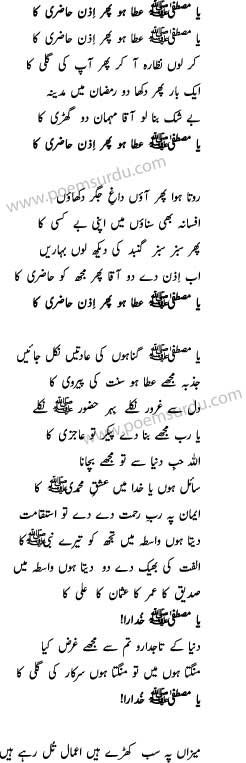 یا مصطفیٰ ﷺ عطا ہو پھر اِذن حاضری کا
یا مصطفیٰ ﷺ عطا ہو پھر اِذن حاضری کا
کر لوں نظارہ آ کر پھر آپ کی گلی کا
ایک بار پھر دکھا دو رمضان میں مدینہ
بے شک بنا لو آقا مہمان دو گھڑی کا
یا مصطفیٰ ﷺ عطا ہو پھر اِذن حاضری کا
www.poemsurdu.com
روتا ہوا پھر آؤں داغِ جگر دکھاؤں
افسانہ بھی سناؤں میں اپنی بے کسی کا
پھر سبز سبز گنبد کی دیکھ لوں بہاریں
اب اِذن دے دو آقا پھر مجھ کو حاضری کا
یا مصطفیٰ ﷺ عطا ہو پھر اِذن حاضری کا
یا مصطفیٰ ﷺ گناہوں کی عادتیں نکل جائیں
جذبہ مجھے عطا ہو سنت کی پیروی کا
دل سے غرور نکلے بہر حضور ﷺ نکلے
یا رب مجھے بنا دے پیکر تو عاجزی کا
www.poemsurdu.com
اللہ حب دنیا سے تو مجھے بچانا
سائل ہوں یا خدا میں عشقِ محمدی ﷺ کا
ایمان پہ ربِ رحمت دے دے تو استقامت
دیتا ہوں واسطہ میں تجھ کو تیرے نبی ﷺ کا
الفت کی بھیک دے دو دیتا ہوں واسطہ میں
صدیق کا عمر کا عثمان کا علی کا
یا مصطفیٰ ﷺ خُدارا!
دنیا کے تاجدارو تم سے مجھے غرض کیا
منگتا ہوں میں تو منگتا ہوں سرکار کی گلی کا
یا مصطفیٰ ﷺ خُدارا!
میزاں پہ سب کھڑے ہیں اعمال تُل رہے ہیں